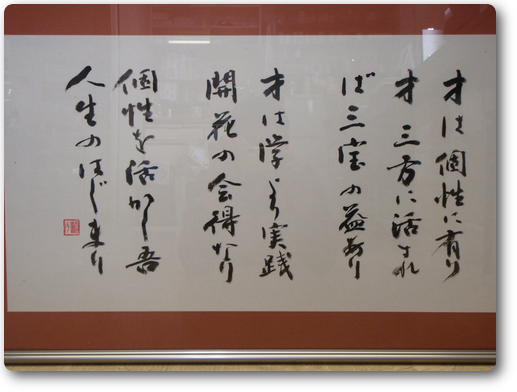 才は個性に有り
才 三方に活され
ば三宝の益あり
才は学より実践
開花の会得なり
個性を活かし吾
人生のはじまり